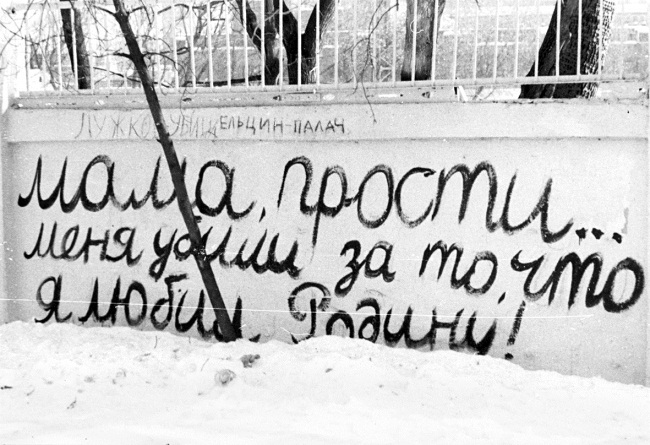 ЛУЖКОВ УБИЙЦ ЕЛЬЦИН-ПАЛАЧ
мама, прости...
меня убили за то, что
я любил Родину!